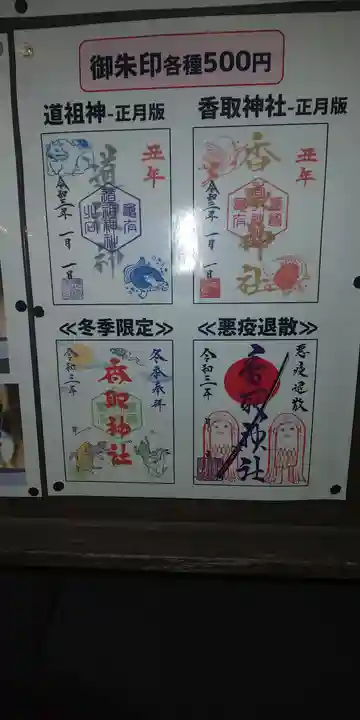 御朱印各種500円
道祖神-正月版
香取神社-正月版
丑年
道祖神
令和三年 一月 一日
道祖神社
亀有
北向
丑年
香取神社
令和三年 一月 一日
亀有
≪冬季限定≫
≪悪疫退散≫
冬季奉拝
香取神社
令和三年 月 日
悪疫退散
香取神社
令和三年 月 日